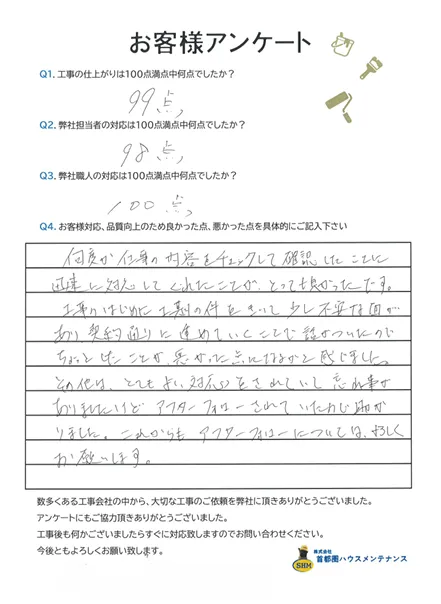 お客様アンケート
Q1. 工事の仕上がりは100点満点中何点でしたか？
99点
Q2. 弊社担当者の対応は100点満点中何点でしたか？
98点
Q3. 弊社職人の対応は100点満点中何点でしたか？
100点
Q4. お客様対応、品質向上のため良かった点、悪かった点を具体的にご記入下さい
何度か仕事の内容をチェックして確認したことに
迅速に対応してくれたことが、とっても良かったです。
工事のはじめに工期の件をきいて少し不安な面が
あり契約通りに進めていくことで話がついたので
ちょっとしたことが悪かった点になるかと感じました。
その他は、とてもよい対応をされていし忘れ事が
ありましたけどアフターフォローされていたわじ助か
りました。これからもアフターフォローについては、よろしく
お願いします。
数多くある工事会社の中から、大切な工事のご依頼を弊社に頂きありがとうございました。
アンケートにもご協力頂きありがとうございました。
工事後も何かございましたらすぐに対応致しますのでお問い合わせください。
今後ともよろしくお願い致します。
SHM
株式会社
首都圏ハウスメンテナンス